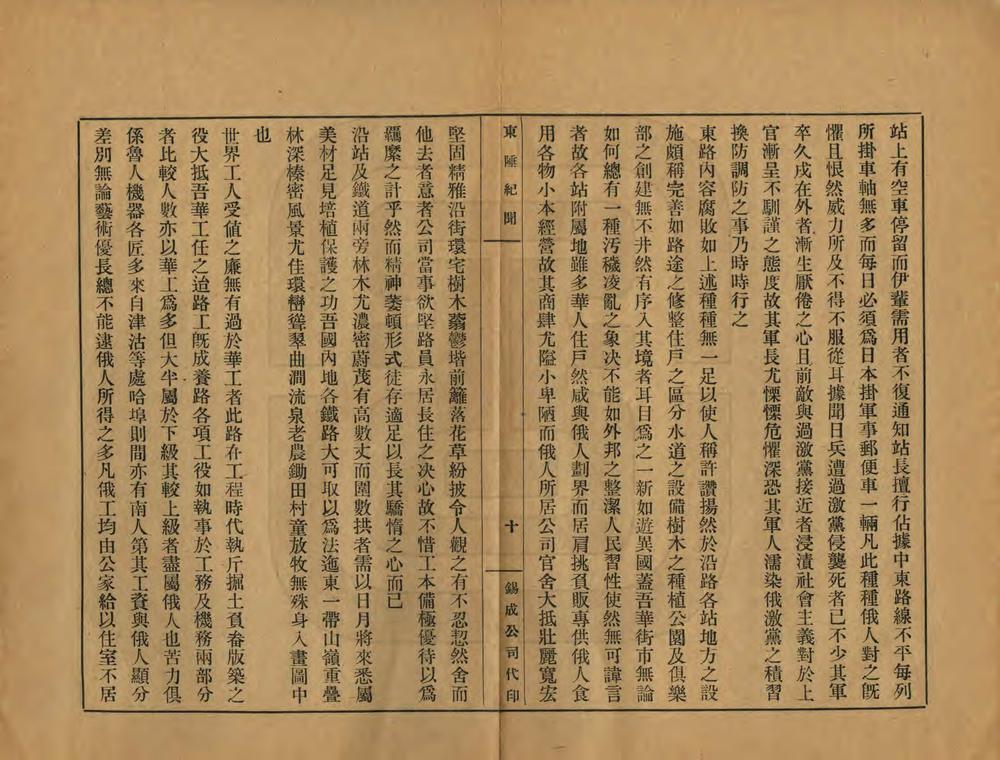 站上有空車停留而伊輩需用者不復通知站長擅行佔據中東路線不平每列
所掛車軸無多而每日必須爲日本掛軍事郵便車一輛凡此種種俄人對之旣
懼且恨然威力所及不得不服從耳據聞日兵遭過激黨侵襲死者已不少其軍
卒久戍在外者漸生厭倦之心且前敵與過激黨接近者浸漬社會主義對於上
官漸呈不馴謹之態度故其軍長尤慄慄危懼深恐其軍人濡染俄激黨之積習
換防調防之事乃時時行之
東路內容腐敗如上述種種無一足以使人稱許讚揚然於沿路各站地方之設
施頗稱完善如路途之修整住戶之區分水道之設備樹木之種植公園及俱樂
部之創建無不井然有序入其境者耳目爲之一新如遊異國蓋吾華街市無論
如何總有一種汚穢凌亂之象决不能如外邦之整潔人民習性使然無可諱言
者故各站附屬地雖多華人住戶然咸與俄人劃界而居肩挑負販專供俄人食
用各物小本經營故其商肆尤隘小卑陋而俄人所居公司官舍大抵壯麗寬宏
東陲紀聞
十
錫成公司代印
堅固精雅沿街環宅樹木蓊鬱堦前籬落花草紛披令人觀之有不忍恝然舍而
他去者意者公司當事欲堅路員永居長住之决心故不惜工本備極優待以爲
羈縻之計乎然而精神萎頓形式徒存適足以長其驕惰之心而已
沿站及鐵道兩旁林木尤濃密蔚茂有高數丈而圍數拱者需以日月將來悉屬
美材足見培植保護之功吾國內地各鐵路大可取以爲法迤東一帶山嶺重疊
林深榛密風景尤佳環巒聳翠曲澗流泉老農鋤田村童放牧無殊身入畫圖中
也
世界工人受値之廉無有過於華工者此路在工程時代執斤掘土負畚版築之
役大抵吾華工任之迨路工旣成養路各項工役如執事於工務及機務兩部分
者比較人數亦以華工爲多但大半屬於下級其較上級者盡屬俄人也苦力俱
係魯人機器各匠多來自津沽等處哈埠則間亦有南人第其工資與俄人顯分
差別無論藝術優長總不能逮俄人所得之多凡俄工均由公家給以住室不居